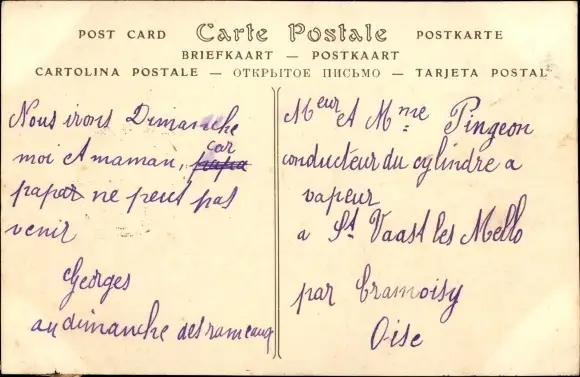 POST CARD Carte Postale POSTKARTE
BRIEFKAART — POSTKAART
CARTOLINA POSTALE — ОТКРЫТОЕ ПИСЬМО — TARJETA POSTAL
Nous irons Dimanche
moi et maman, papa car
papa ne peut pas
venir
Georges
au dimanche des rameaux
Meur et Mme Pingeon
conducteur du cylindre a
vapeur
a St Vaast les Mello
par Cramoisy
Oise